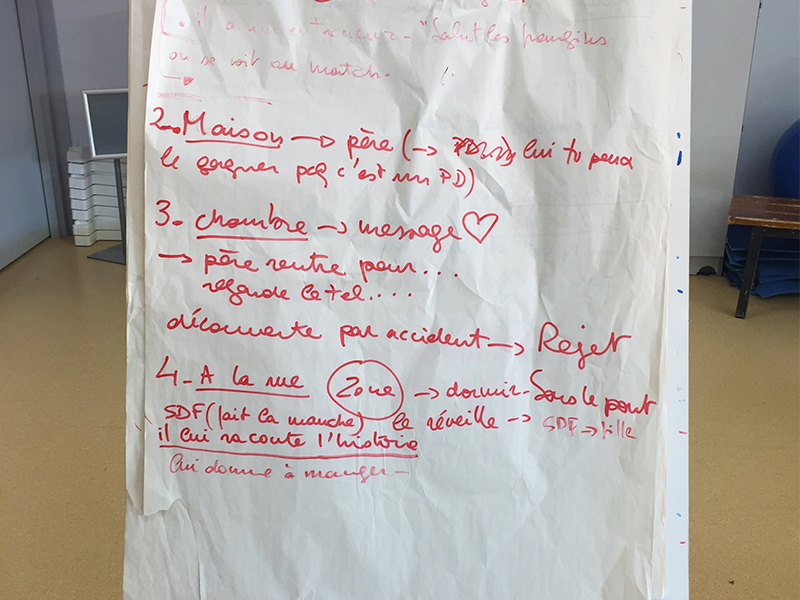 il a un entraineur - "Salut les frangins
on se voit au match.
2. Maison → père (→ lui tu peux
le gagner pcq c'est un PD)
3 - chambre → message ♡
→ père rentre pour...
regarde le tel....
découverte par accident → Rejet
4 - A la rue Zone → dormir - Sous le pont
SDF (fait la manche) le réveille → SDF → fille
il lui raconte l'histoire
lui donne à manger -